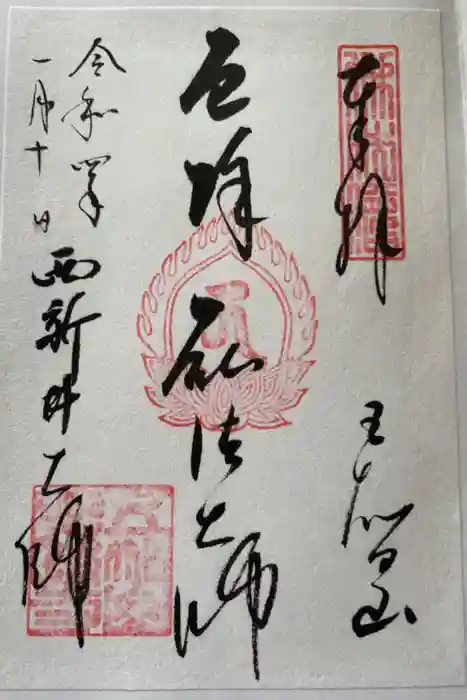 奉拝
五智山
厄除
弘法大師
令和四年
一月十日
西新井
大師